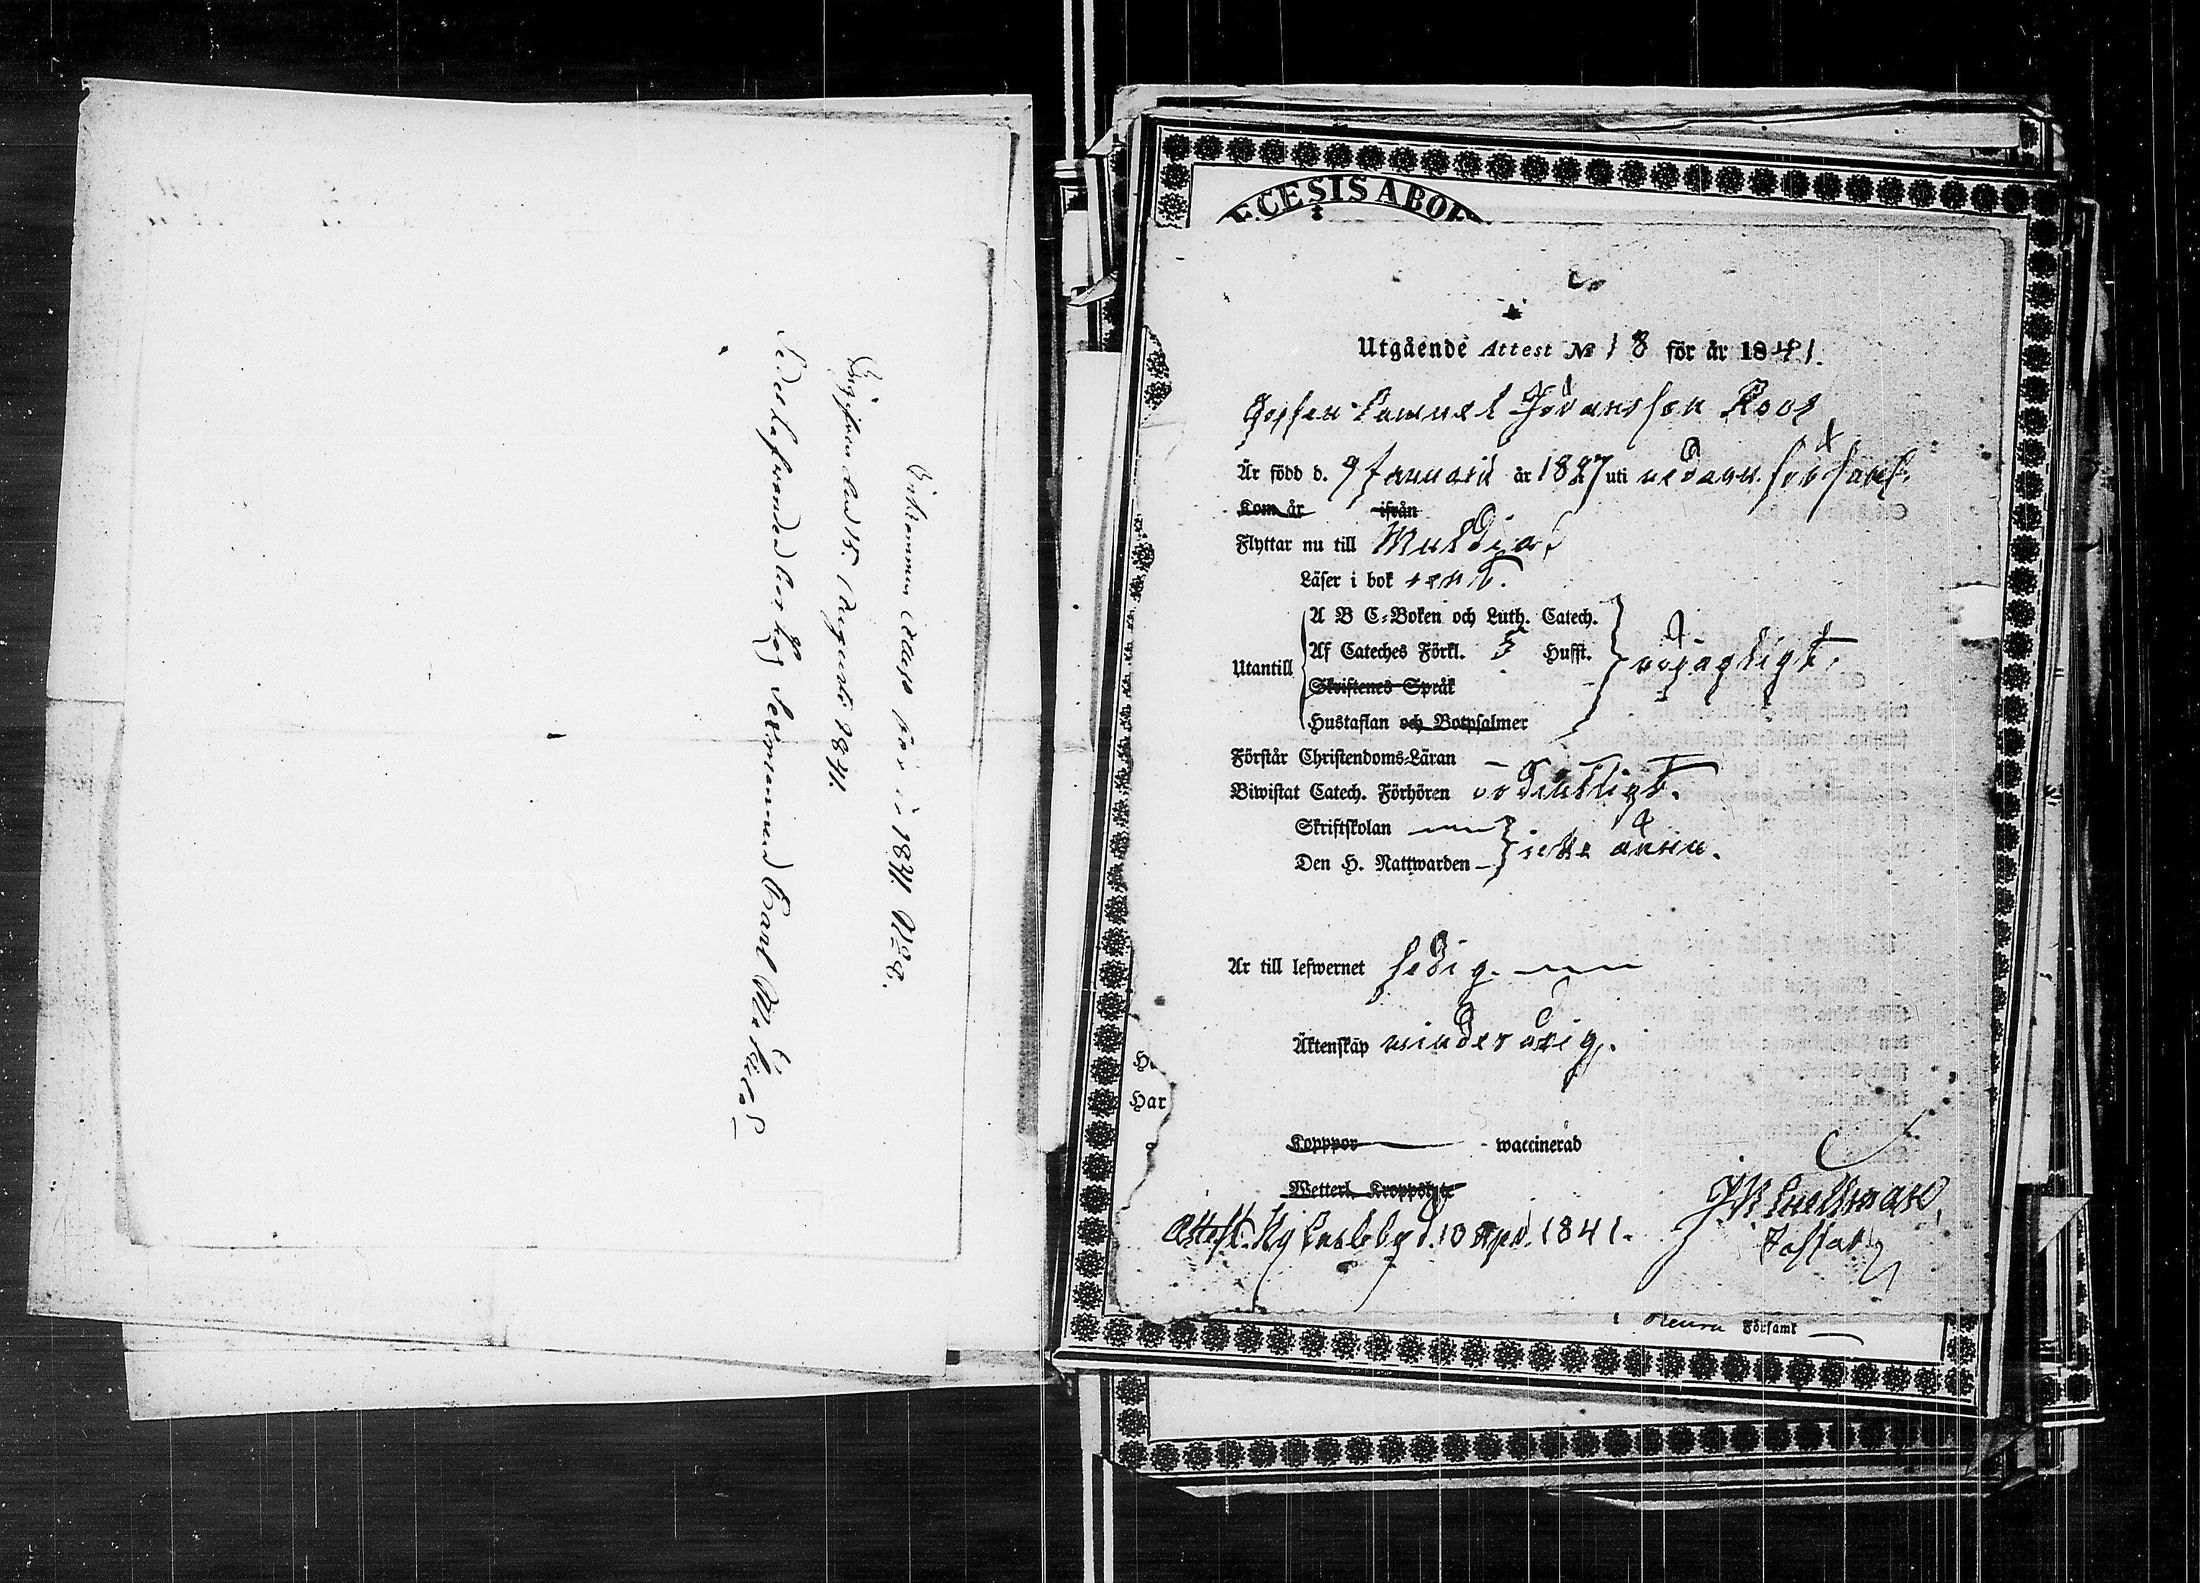 Inkommen Attest för år 1841. No 8.
Begifven den 15 Augusti 1841.
ECESIS ABOE
Utgående Attest No 18 för år 1841.
Gossen Samuel Göransson Roos
Är född d. 9 Januarii år 1827 uti nedann. församl.
Kom år ifrån
Flyttar nu till Muldia
Läser i bok rent.
Utantill
A B C-Boken och Luth. Catech.
Af Cateches Förkl. 5 Hufst.
Skriftenes Språk
Hustaflan och Botpsalmer
någägligt.
Förstår Christendoms-Läran —
Biwistat Catech. Förhören ordentligt.
Skriftskolan
Den H. Nattwarden —
icke ännu.
Är till lefwernet sedig.
Äktenskap minderårig.
Ha
Har
Kopppor waccinerad
Wetterl. Kroppslyte
Attest. Ny Carleby d. 10 Apr. 1841.
Pastor
i Församl